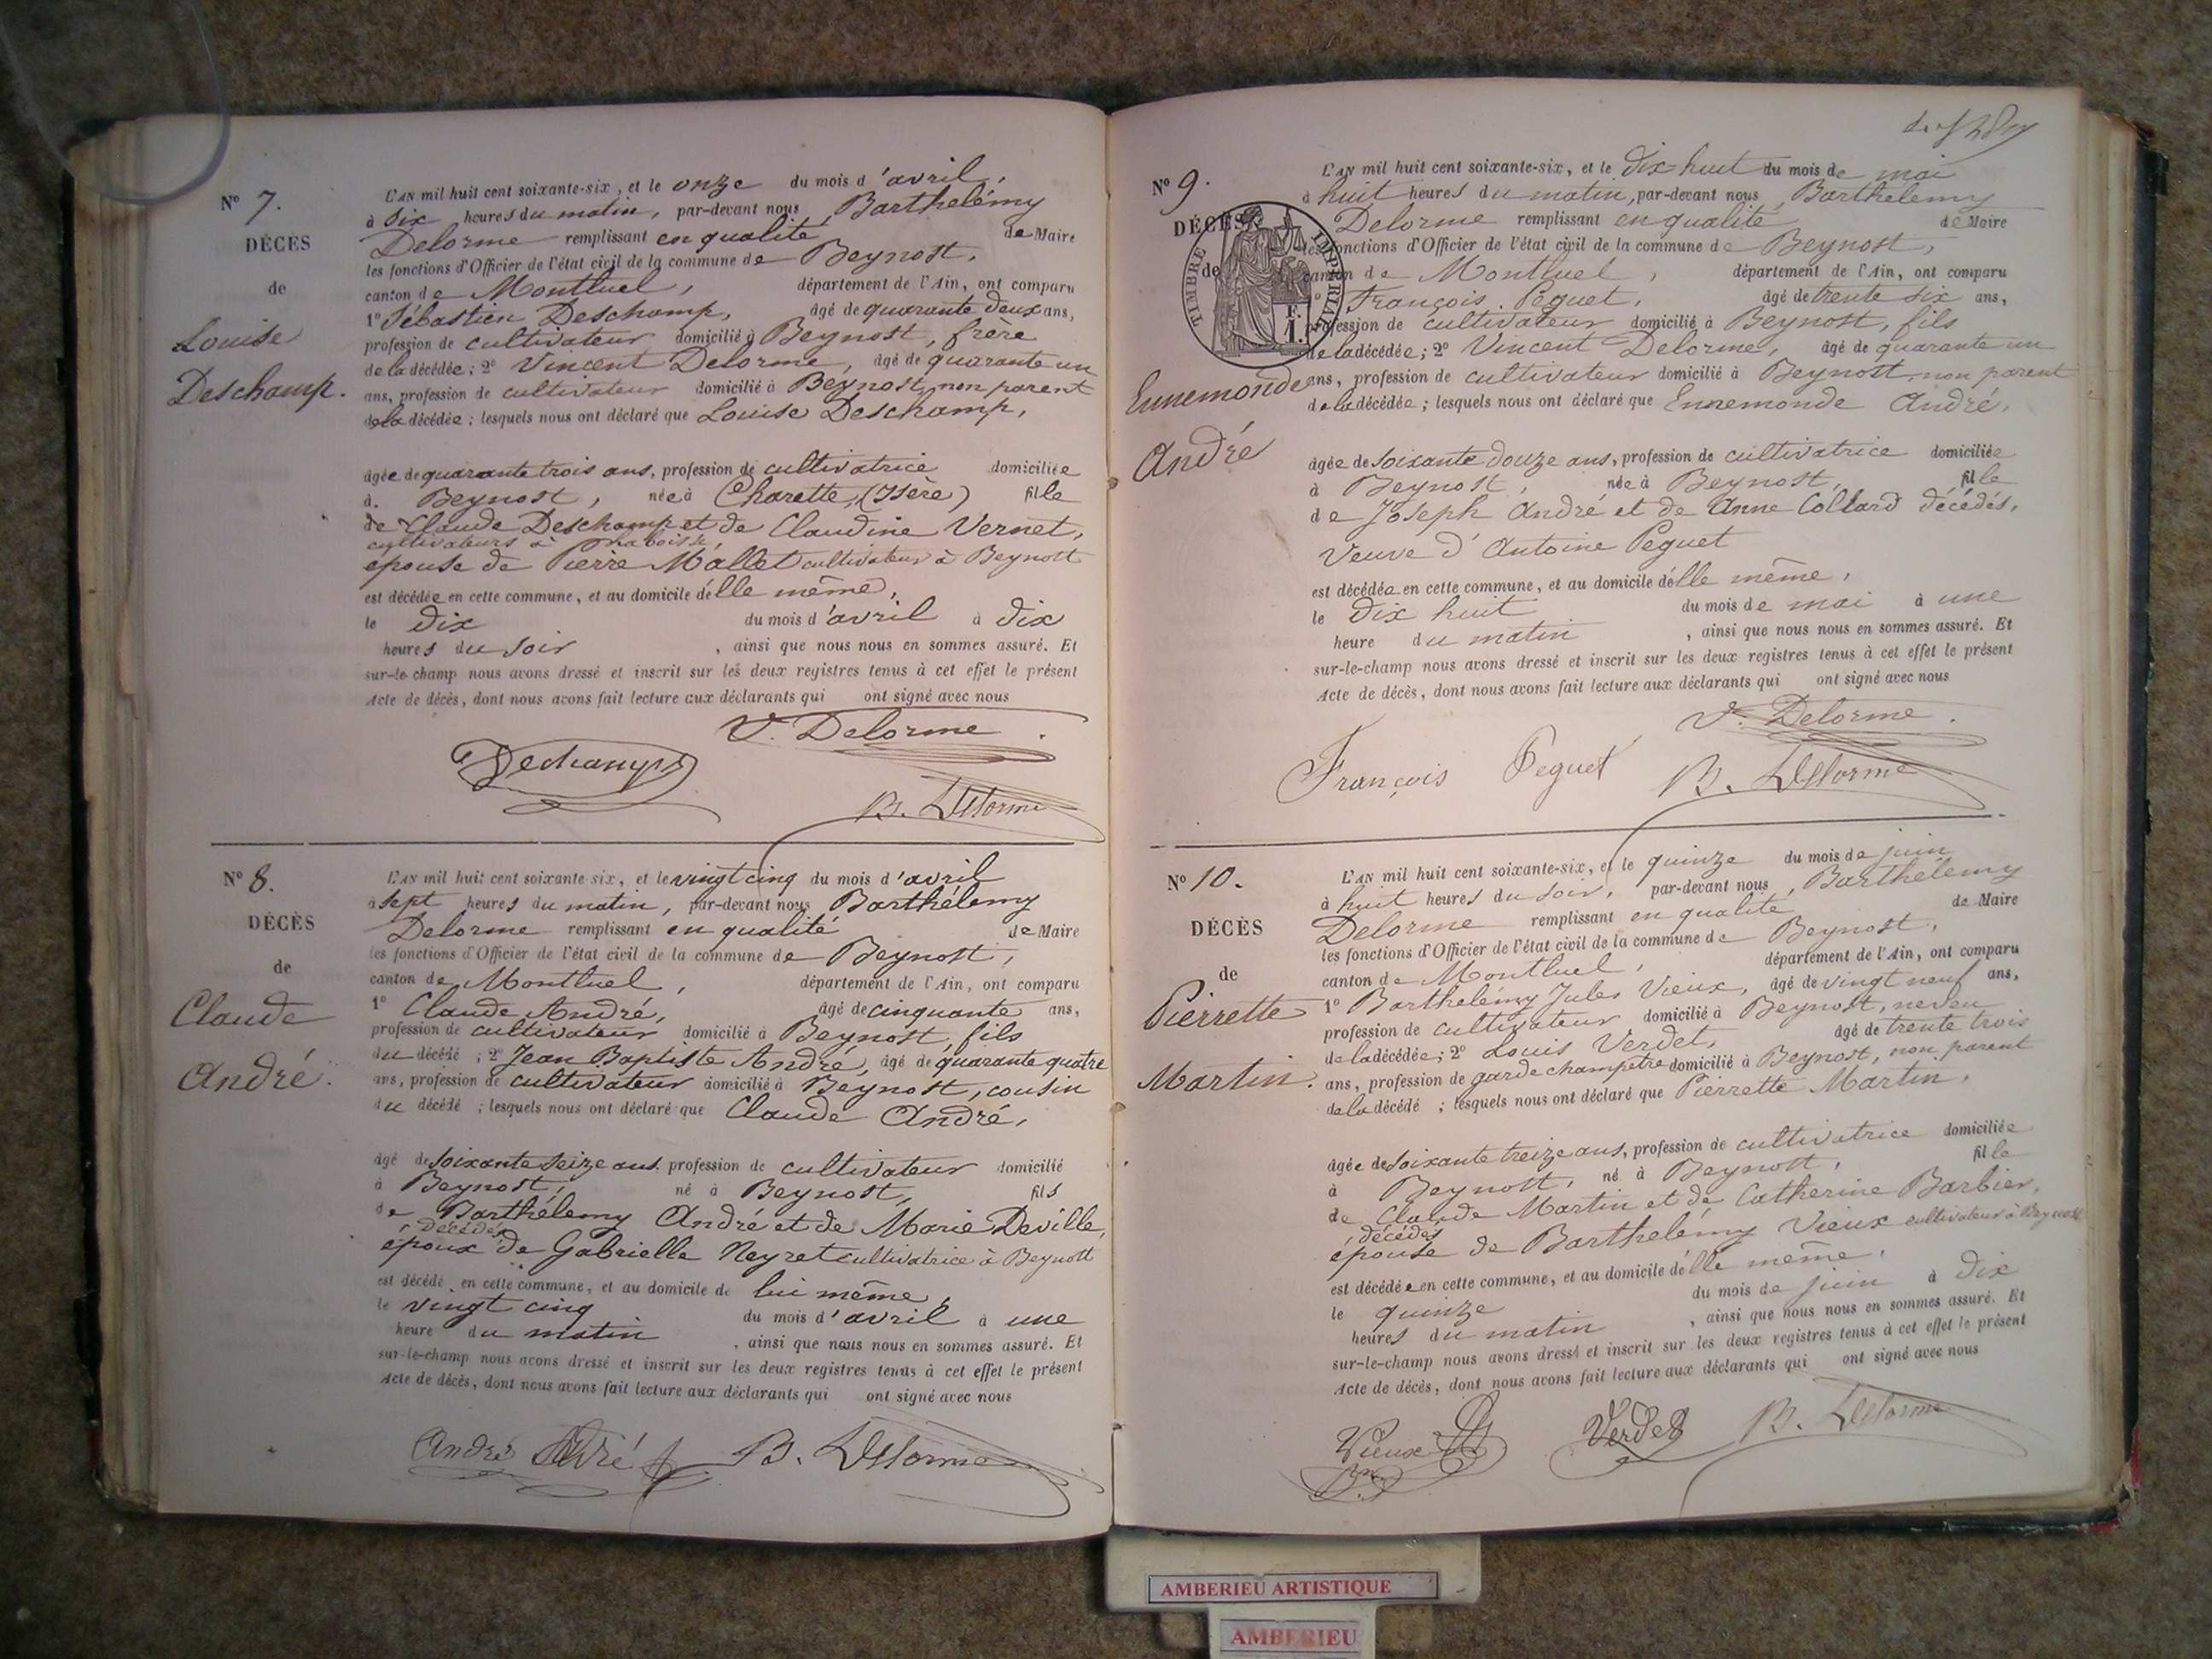 N° 7.
DÉCÈS
de
Louise
Deschamp.
L'AN mil huit cent soixante-six, et le onze du mois d'avril,
à six heures du matin, par-devant nous, Barthelémy
Delorme remplissant en qualité de Maire
les fonctions d'Officier de l'état civil de la commune de Beynost,
canton de Montluel, département de l'Ain, ont comparu
1° Sébastien Deschamp, âgé de quarante deux ans,
profession de cultivateur domicilié à Beynost, frère
de la décédée; 2° Vincent Delorme, âgé de quarante un
ans, profession de cultivateur domicilié à Beynost, non parent
de la décédée; lesquels nous ont déclaré que Louise Deschamp,
âgée de quarante trois ans, profession de cultivatrice domiciliée
à Beynost, née à Charette, (Isère) fille
de Claude Deschamp et de Claudine Vernet,
cultivateurs à
épouse de Pierre Mallet cultivateur à Beynost
est décédée en cette commune, et au domicile d'elle même,
le dix du mois d'avril à dix
heures du soir, ainsi que nous nous en sommes assuré. Et
sur-le-champ nous avons dressé et inscrit sur les deux registres tenus à cet effet le présent
Acte de décès, dont nous avons fait lecture aux déclarants qui ont signé avec nous
V. Delorme.
Deschamps
B. Delorme
N° 8.
DÉCÈS
de
Claude
André.
L'AN mil huit cent soixante-six, et le vingt cinq du mois d'avril
à sept heures du matin, par-devant nous Barthélémy
Delorme remplissant en qualité de Maire
les fonctions d'Officier de l'état civil de la commune de Beynost,
canton de Montluel, département de l'Ain, ont comparu
1° Claude André, âgé de cinquante ans,
profession de cultivateur domicilié à Beynost, fils
du décédé; 2° Jean Baptiste André, âgé de quarante quatre
ans, profession de cultivateur domicilié à Beynost, cousin
du décédé; lesquels nous ont déclaré que Claude André,
âgé de soixante seize ans, profession de cultivateur domicilié
à Beynost, né à Beynost, fils
de Barthélemy André et de Marie Deville,
décédés
époux de Gabrielle Neyret cultivatrice à Beynost
est décédé en cette commune, et au domicile de lui même,
le vingt cinq du mois d'avril à une
heure du matin, ainsi que nous nous en sommes assuré. Et
sur-le-champ nous avons dressé et inscrit sur les deux registres tenus à cet effet le présent
Acte de décès, dont nous avons fait lecture aux déclarants qui ont signé avec nous
André André B. Delorme
N° 9.
DÉCÈS
de
TIMBRE IMPÉRIAL
1 F.
Ennemonde
André
L'AN mil huit cent soixante-six, et le dix-huit du mois de mai
à huit heures du matin, par-devant nous, Barthélemy
Delorme remplissant en qualité de Maire
les fonctions d'Officier de l'état civil de la commune de Beynost,
canton de Montluel, département de l'Ain, ont comparu
1° François Peguet, âgé de trente six ans,
profession de cultivateur domicilié à Beynost, fils
de la décédée; 2° Vincent Delorme, âgé de quarante un
ans, profession de cultivateur domicilié à Beynost, non parent
de la décédée; lesquels nous ont déclaré que Ennemonde André,
âgée de soixante douze ans, profession de cultivatrice domiciliée
à Beynost, née à Beynost, fille
de Joseph André et de Anne Collard décédés,
veuve d'Antoine Peguet
est décédée en cette commune, et au domicile d'elle même,
le dix huit du mois de mai à une
heure du matin, ainsi que nous nous en sommes assuré. Et
sur-le-champ nous avons dressé et inscrit sur les deux registres tenus à cet effet le présent
Acte de décès, dont nous avons fait lecture aux déclarants qui ont signé avec nous
V. Delorme.
François Peguet B. Delorme
N° 10.
DÉCÈS
de
Pierrette
Martin.
L'AN mil huit cent soixante-six, et le quinze du mois de juin
à huit heures du soir, par-devant nous, Barthélémy
Delorme remplissant en qualité de Maire
les fonctions d'Officier de l'état civil de la commune de Beynost,
canton de Montluel, département de l'Ain, ont comparu
1° Barthelémy Jules Vieux, âgé de vingt neuf ans,
profession de cultivateur domicilié à Beynost, neveu
de la décédée; 2° Louis Verdet, âgé de trente trois
ans, profession de garde champêtre domicilié à Beynost, non parent
de la décédé; lesquels nous ont déclaré que Pierrette Martin,
âgée de soixante treize ans, profession de cultivatrice domiciliée
à Beynost, né à Beynost, fille
de Claude Martin et de Catherine Barbier,
décédés
épouse de Barthelémy Vieux cultivateur à Beynost
est décédée en cette commune, et au domicile d'elle même,
le quinze du mois de juin à dix
heures du matin, ainsi que nous nous en sommes assuré. Et
sur-le-champ nous avons dressé et inscrit sur les deux registres tenus à cet effet le présent
Acte de décès, dont nous avons fait lecture aux déclarants qui ont signé avec nous
Vieux Verdet B. Delorme
AMBERIEU ARTISTIQUE
AMBERIEU